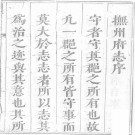 撫州府志序
守者守其郡之所有也故
凡一郡之所有皆守事而
莫大於志志者所以志其
爲治之迹與其意也其所